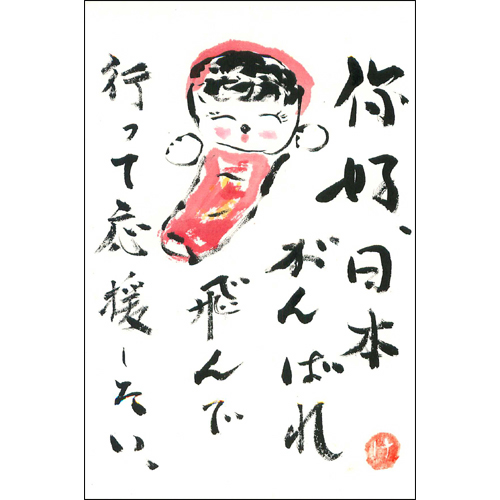 你好、日本
がんばれ
飛んで
行って応援したい、